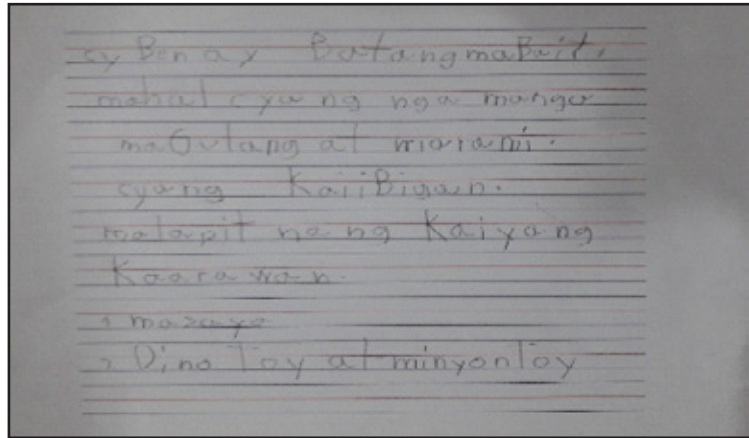 cy Ben ay Batang maBait.
mahal cya ng nga manga
maGulang at marami.
cyang KaiiBigan.
malapit na ng Kaiyang
Kaarawan.
1 masaya
2 Dino Toy at minyon Toy